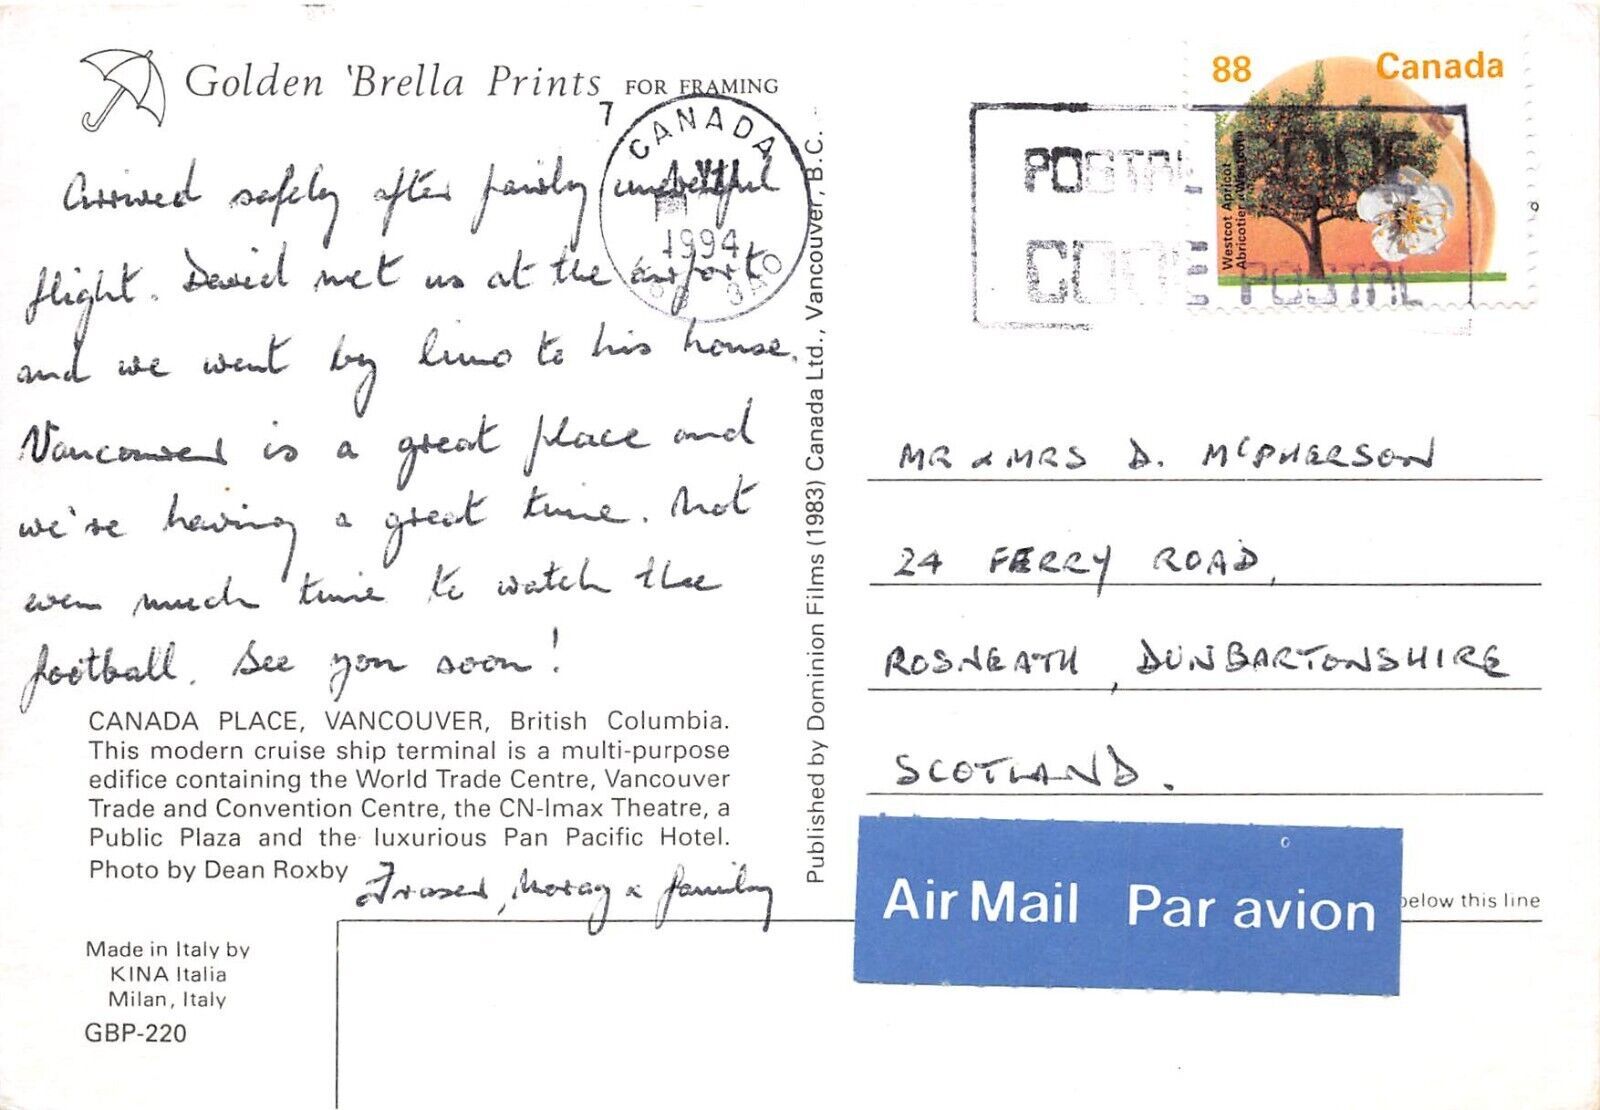 Golden 'Brella Prints FOR FRAMING
Arrived safely after fairly uneventful
flight. David met us at the airport
and we went by limo to his house.
Vancouver is a great place and
we're having a great time. Not
even much time to watch the
football. See you soon!
CANADA PLACE, VANCOUVER, British Columbia.
This modern cruise ship terminal is a multi-purpose
edifice containing the World Trade Centre, Vancouver
Trade and Convention Centre, the CN-Imax Theatre, a
Public Plaza and the luxurious Pan Pacific Hotel.
Photo by Dean Roxby
Fraser, Morag & family
Made in Italy by
KINA Italia
Milan, Italy
GBP-220
Published by Dominion Films (1983) Canada Ltd., Vancouver, B.C.
7
CANADA
1994
88 Canada
Westcot Apricot
Abricotier «Westcot»
POSTAL CODE
CODE POSTAL
MR & MRS D. McPHERSON
24 FERRY ROAD,
ROSNEATH, DUNBARTONSHIRE
SCOTLAND.
Air Mail Par avion
below this line